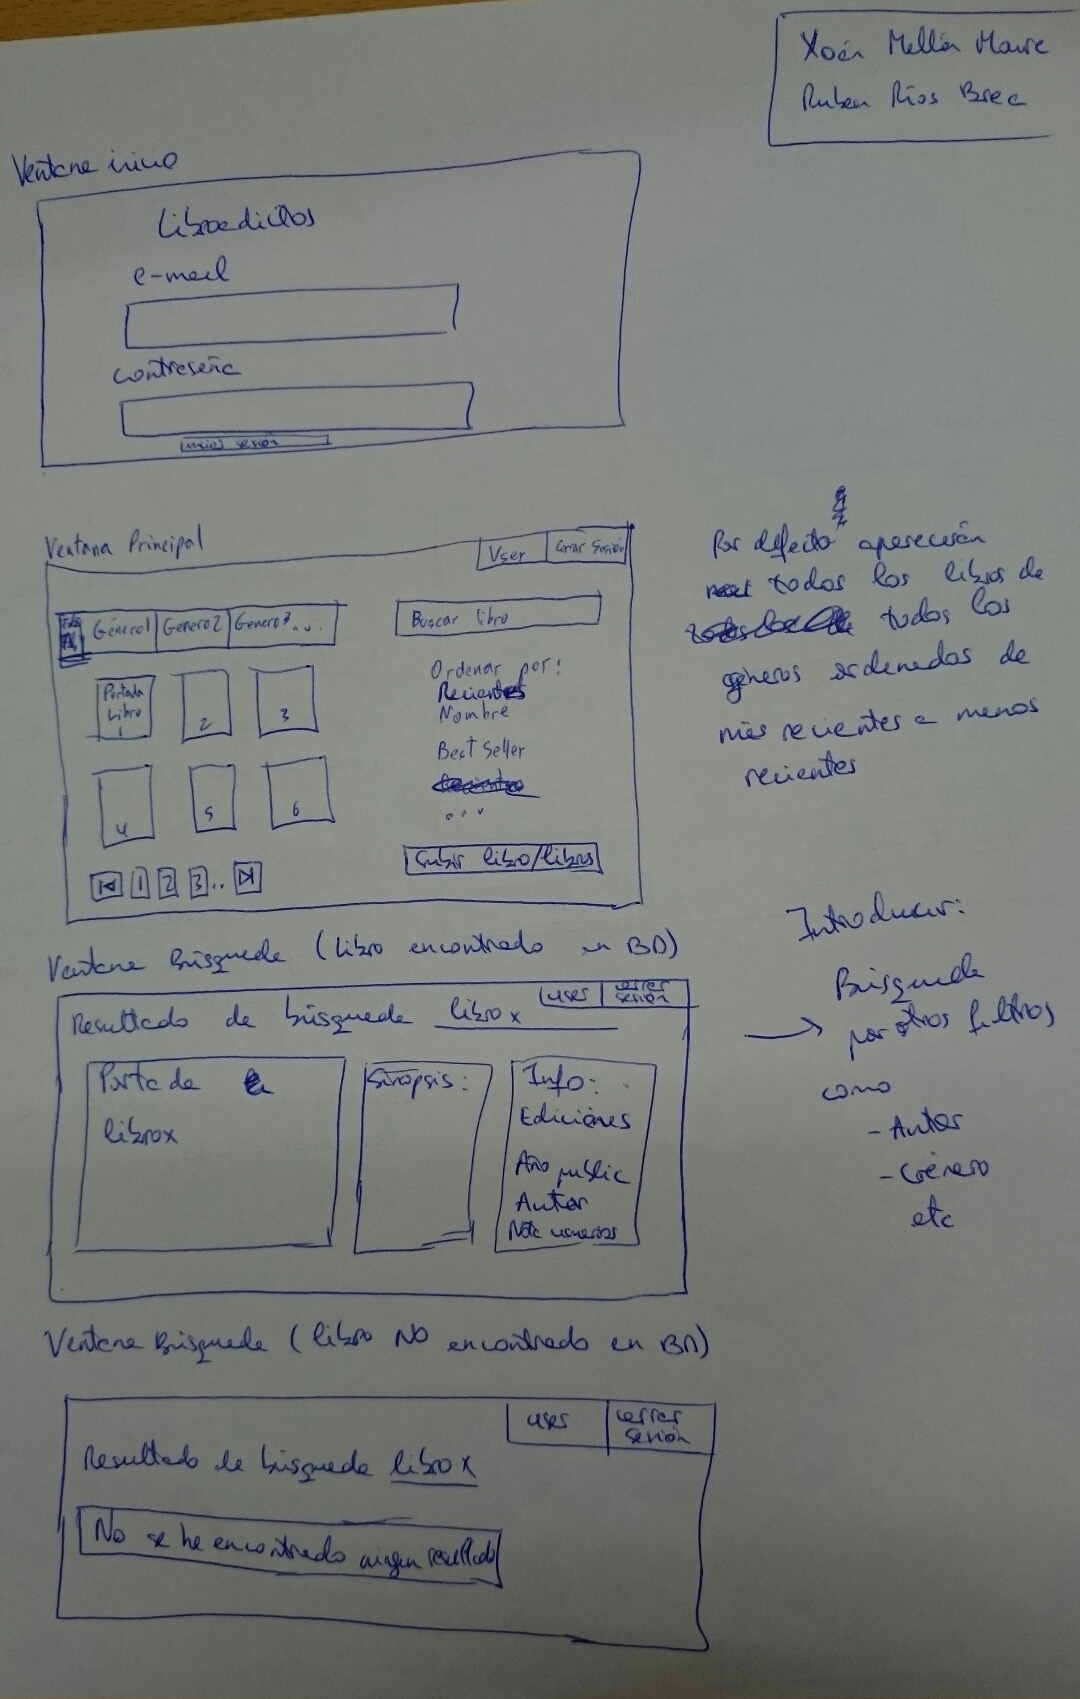 Xoán Mellán
Ruben Ríos Brea
Ventana inicio
Libroadictos
e-mail
contraseña
iniciar sesión
Ventana Principal
User
Cerrar Sesión
Género1
Genero2
Genero3...
Buscar libro
Portada
Libro
1
2
3
4
5
6
Ordenar por:
Recientes
Nombre
Best Seller
...
Subir libro/libros
1
2
3
..
Por defecto aparecerán
todos los libros de
todos los
géneros ordenados de
más recientes a menos
recientes
Ventana Búsqueda (libro encontrado en BD)
Resultado de búsqueda libro x
user
cerrar
sesión
Portada
libro x
Sinopsis:
Info:
Ediciones
Año public
Autor
Nota usuarios
Introducir:
Búsqueda
por otros filtros
como
- Autor
- Género
etc
Ventana Búsqueda (libro NO encontrado en BD)
user
cerrar
sesión
Resultado de búsqueda libro x
No se ha encontrado ningun resultado